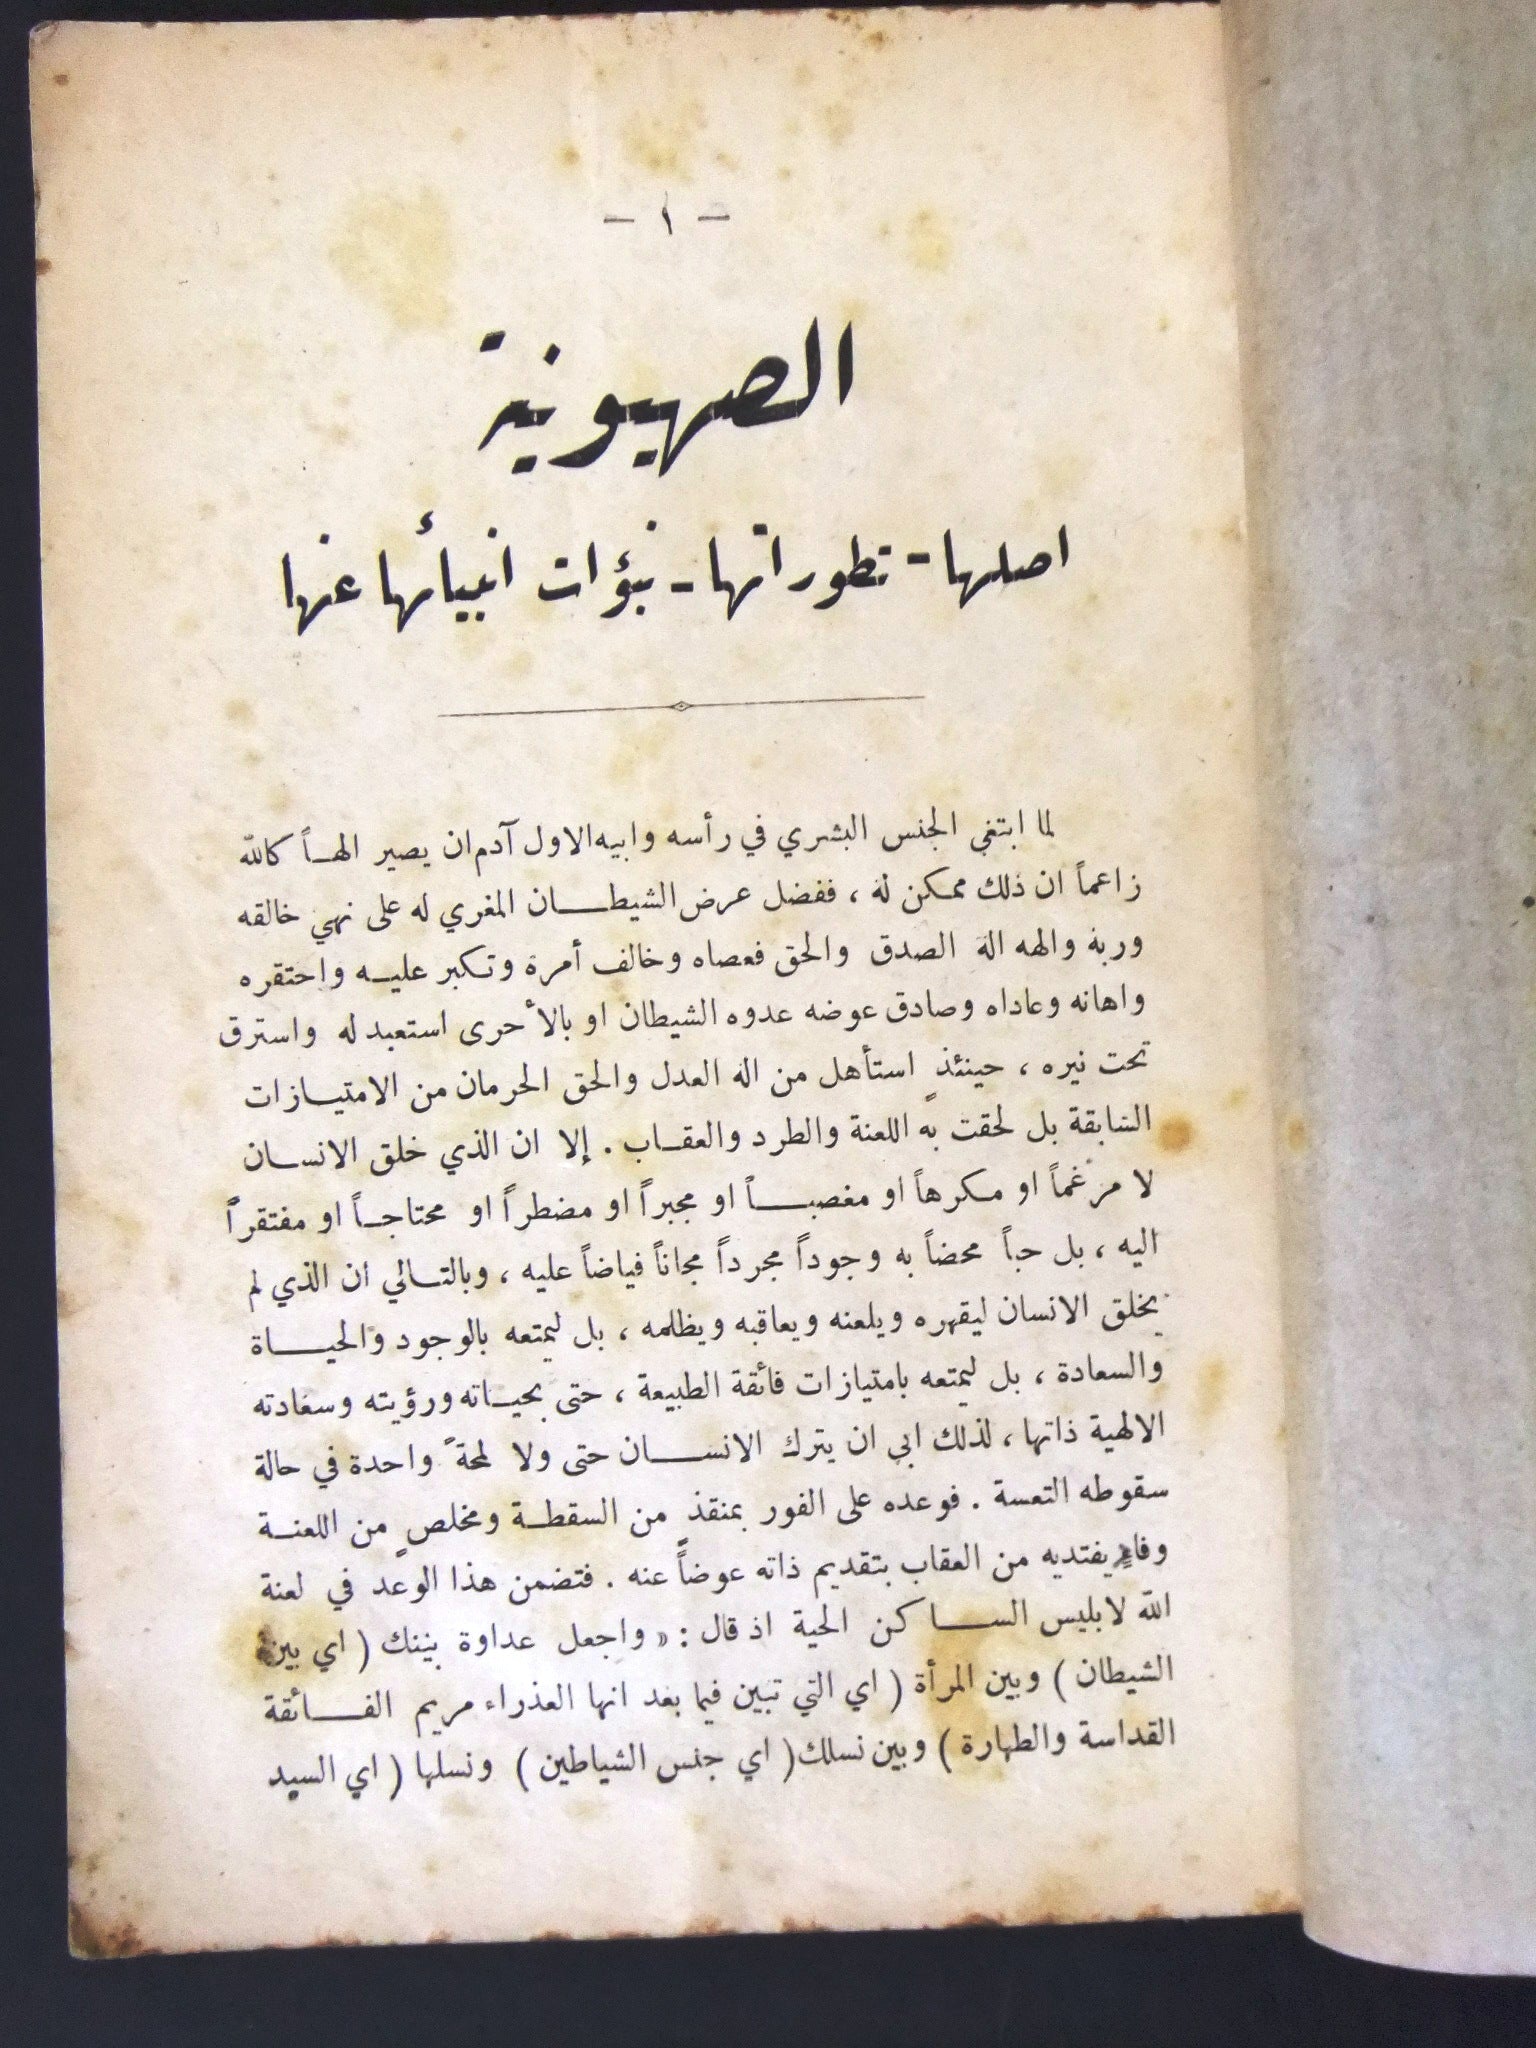 - ١ -
الصهيونية
اصلها - تطوراتها - نبؤات انبيائها عنها
لما ابتغى الجنس البشري في رأسه وابيه الاول آدم ان يصير الهاً كالله
زاعماً ان ذلك ممكن له ، ففضل عرض الشيطان المغري له على نهي خالقه
وربه والهه اله الصدق والحق فعصاه وخالف أمره وتكبر عليه واحتقره
واهانه وعاداه وصادق عوضه عدوه الشيطان او بالأحرى استعبد له واسترق
تحت نيره ، حينئذٍ استأهل من اله العدل والحق الحرمان من الامتيازات
السابقة بل لحقت به اللعنة والطرد والعقاب . إلا ان الذي خلق الانسان
لا مرغماً او مكرهاً او مغصباً او مجبراً او مضطراً او محتاجاً او مفتقراً
اليه ، بل حباً محضاً به وجوداً مجرداً مجاناً فياضاً عليه ، وبالتالي ان الذي لم
يخلق الانسان ليقهره ويلعنه ويعاقبه ويظلمه ، بل ليمتعه بالوجود والحياة
والسعادة ، بل ليمتعه بامتيازات فائقة الطبيعة ، حتى بحياته ورؤيته وسعادته
الالهية ذاتها ، لذلك ابى ان يترك الانسان حتى ولا لمحةً واحدة في حالة
سقوطه التعسة . فوعده على الفور بمنقذٍ من السقطة ومخلصٍ من اللعنة
وفادٍ يفتديه من العقاب بتقديم ذاته عوضاً عنه . فتضمن هذا الوعد في لعنة
الله لابليس الساكن الحية اذ قال : « واجعل عداوة بينك ( اي بين
الشيطان ) وبين المرأة ( اي التي تبين فيما بعد انها العذراء مريم الفائقة
القداسة والطهارة ) وبين نسلك ( اي جنس الشياطين ) ونسلها ( اي السيد